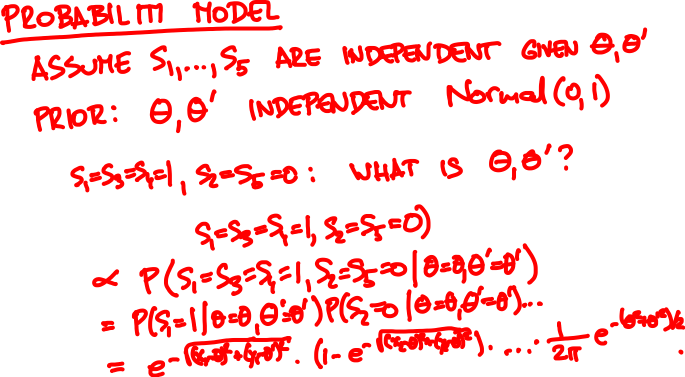 PROBABILITY MODEL
ASSUME S₁,...,S₅ ARE INDEPENDENT GIVEN Θ,Θ'
PRIOR: Θ,Θ' INDEPENDENT Normal(0,1)
S₁=S₃=S₄=1, S₂=S₅=0: WHAT IS Θ,Θ'?
S₁=S₃=S₄=1, S₂=S₅=0)
∝ P(S₁=S₃=S₄=1, S₂=S₅=0|Θ=θ,Θ'=θ')
= P(S₁=1|Θ=θ,Θ'=θ')P(S₂=0|Θ=θ,Θ'=θ')...
= e^-√((x₁-θ)²+(y₁-θ')²) · (1-e^-√((x₂-θ)²+(y₂-θ')²)) · ... · 1/2π e^-(θ²+θ'²)/2 .